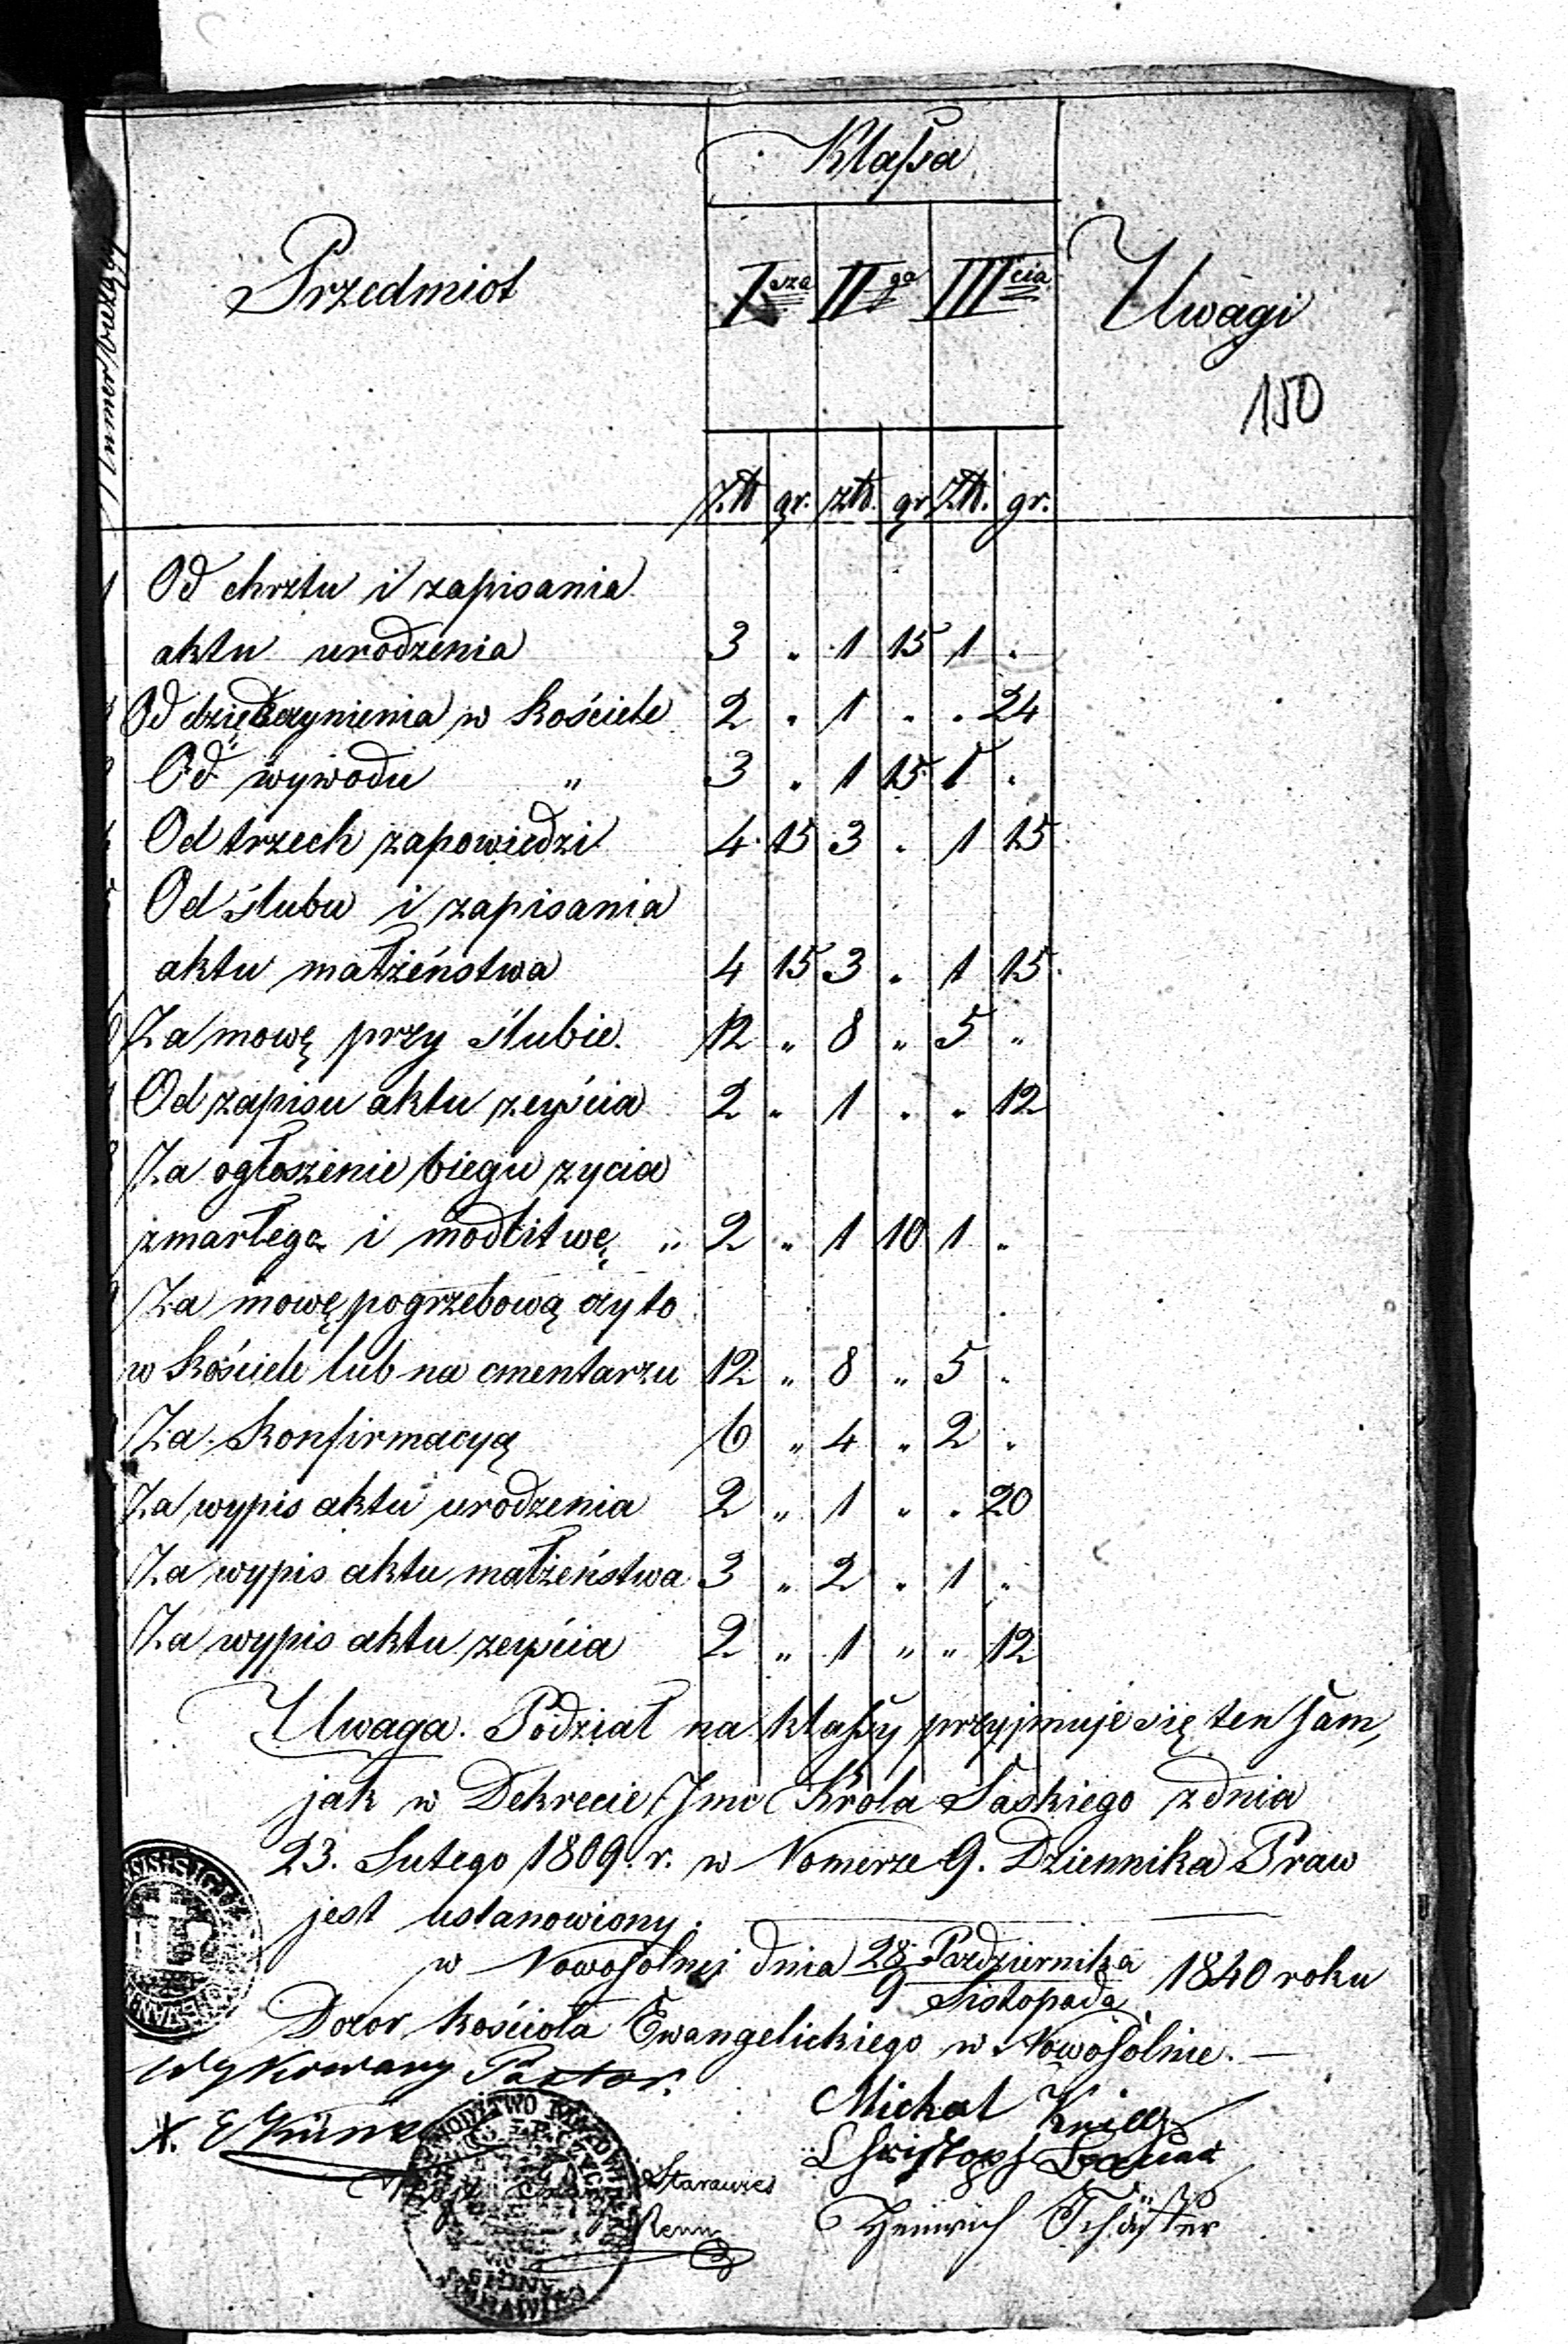 Klassa
Numer bieżący
Przedmiot
I sza II ga III cia
Uwagi
150
Złt gr. złt. gr Złt. gr.
1 Od chrztu i zapisania
aktu urodzenia 3 " 1 15 1 "
Od dziękczynienia w kościele 2 " 1 " " 24
Od wywodu " 3 " 1 15 1 "
Od trzech zapowiedzi 4 15 3 " 1 15
Od ślubu i zapisania
aktu małżeństwa 4 15 3 " 1 15
Za mowę przy ślubie. 12 " 8 " 5 "
Od zapisu aktu zejścia 2 " 1 " " 12
8 Za ogłoszenie biegu zycia
zmarłego i modlitwę " 2 " 1 10 1 "
Za mowę pogrzebową czy to
w kościele lub na cmentarzu 12 " 8 " 5 "
Za Konfirmacyą 6 " 4 " 2 "
Za wypis aktu urodzenia 2 " 1 " " 20
Za wypis aktu małżeństwa 3 " 2 " 1 "
Za wypis aktu zejścia 2 " 1 " " 12
Uwaga. Podział na klassy przyjmuje się ten sam,
jak w Dekrecie Jmo Króla Saskiego z dnia
23. Lutego 1809. r. w Nomerze 9. Dziennika Praw
jest ustanowiony.
w Nowosolnej dnia 28 Października 1840 roku
9 Listopada
Dozor kościoła Ewangelickiego w Nowosolnie.
Pastor.
Michal
Starawies
Heinrich Schäffer